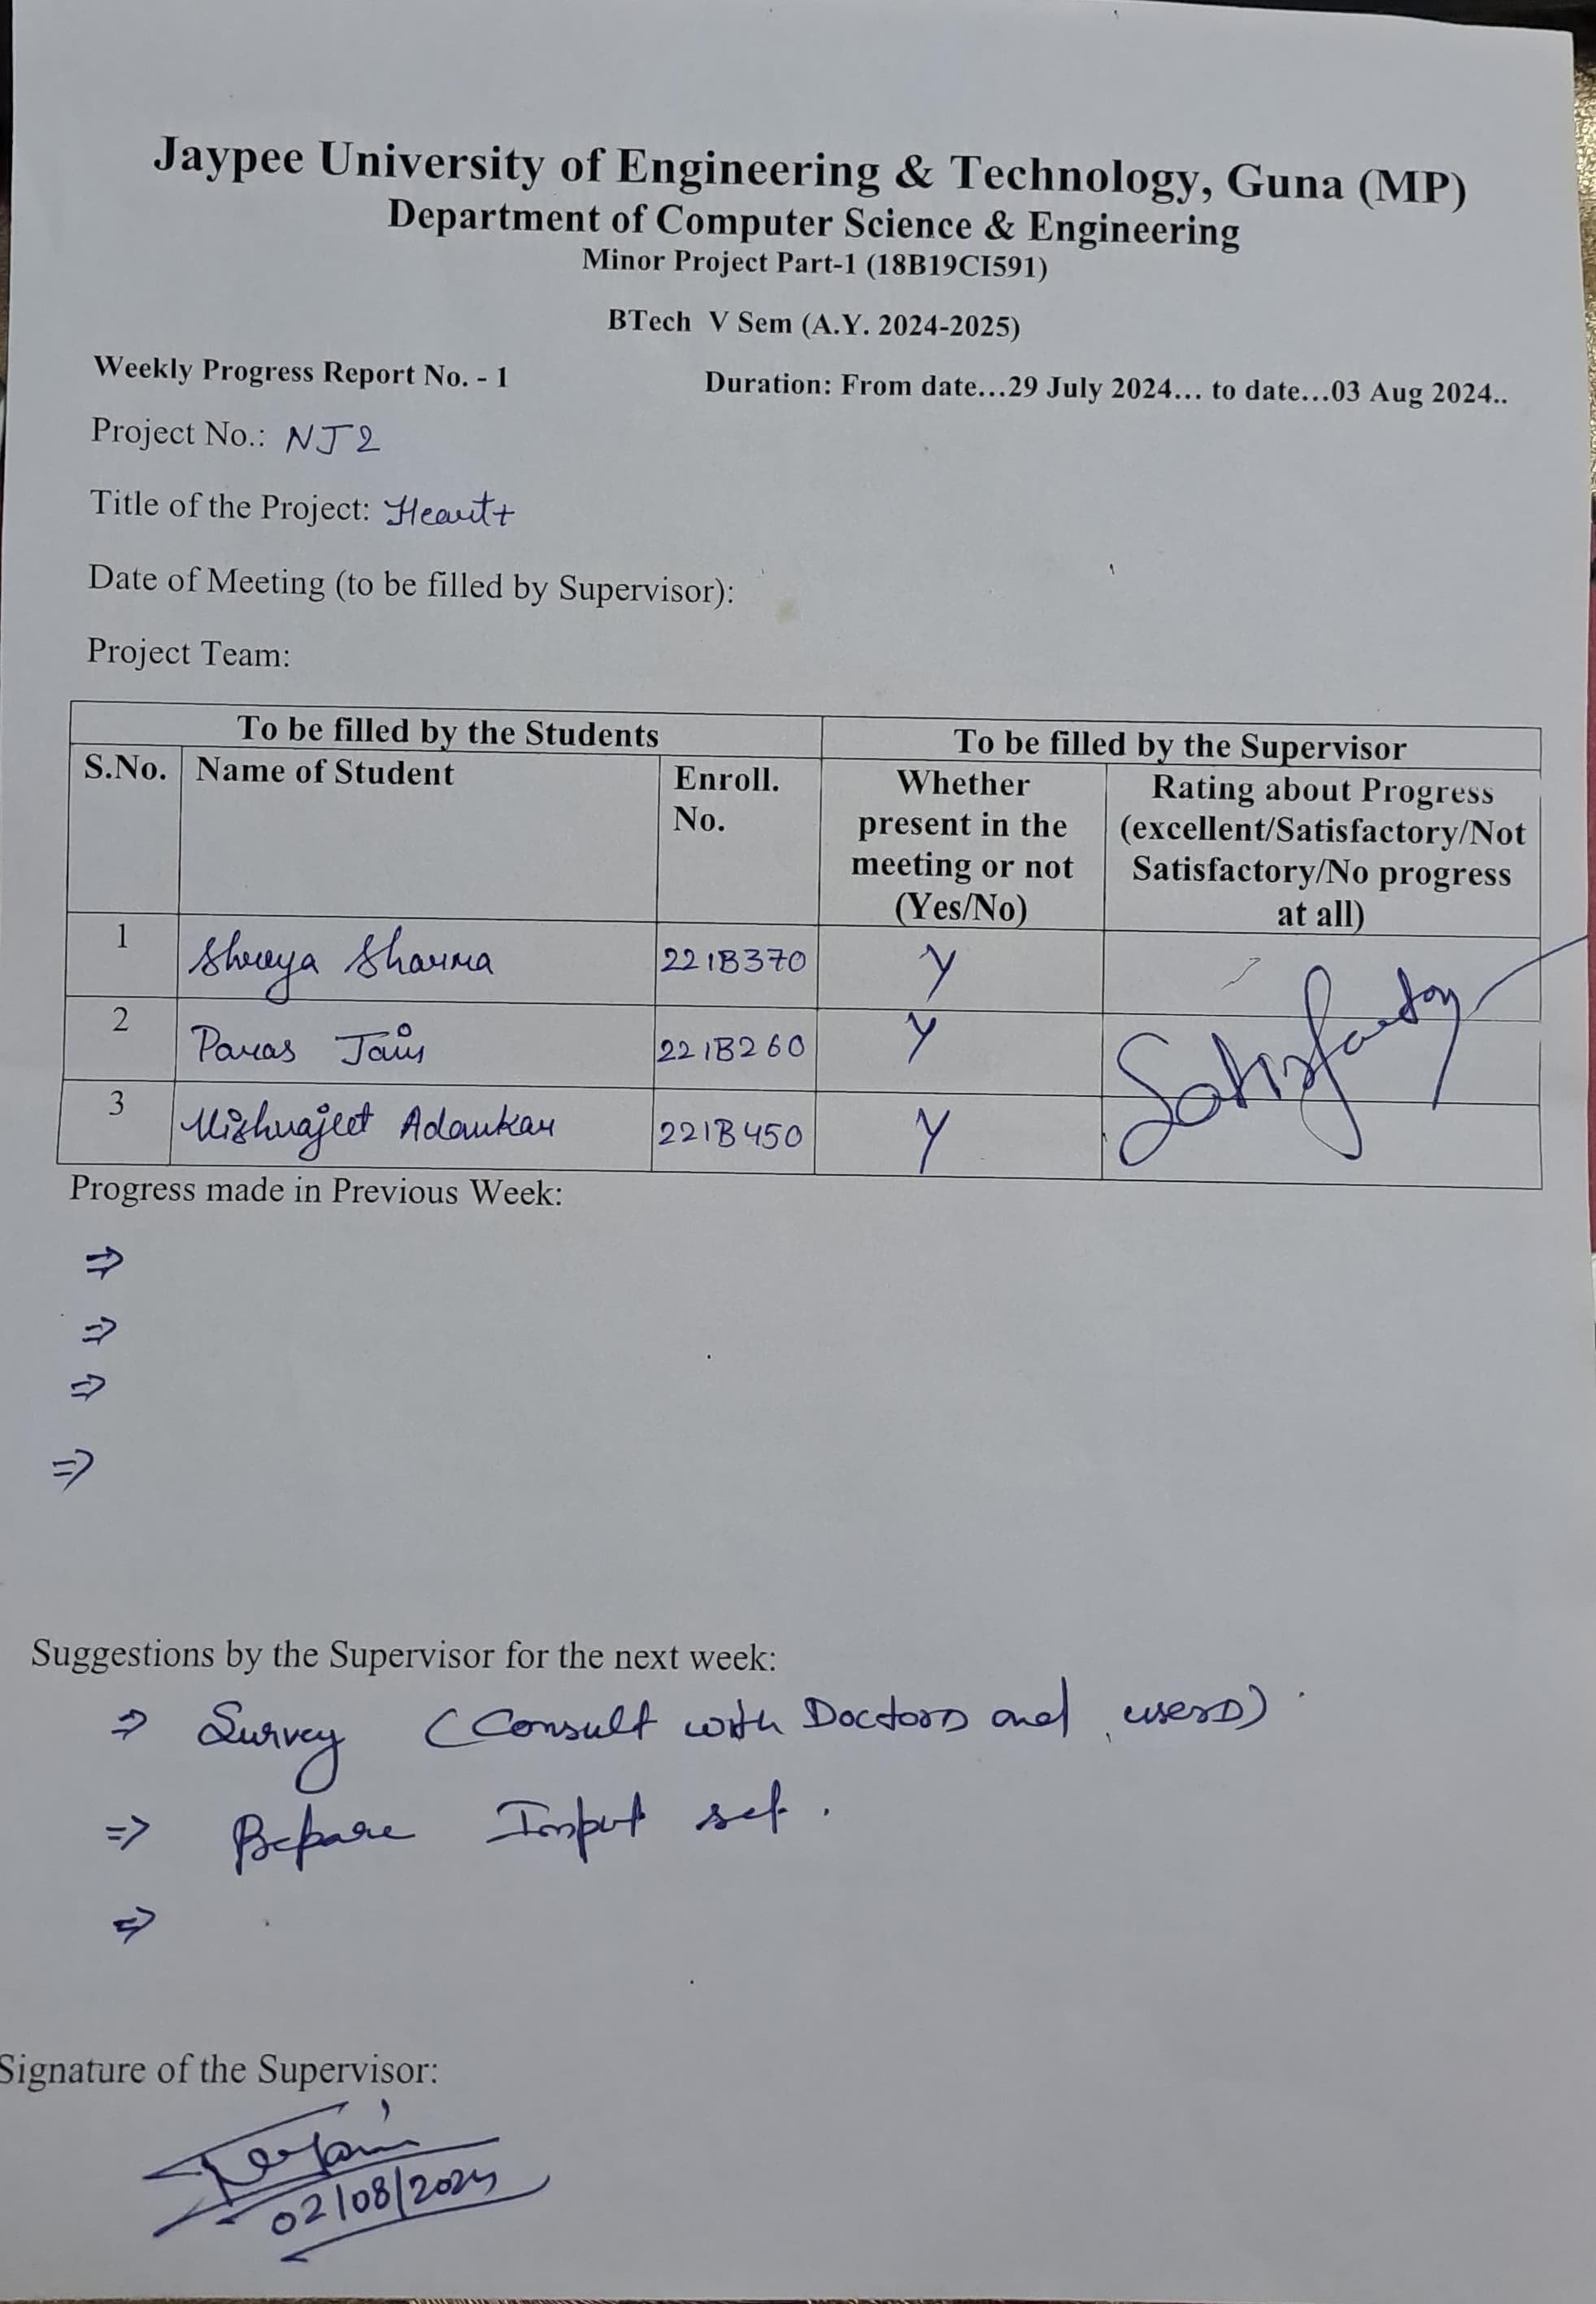 Jaypee University of Engineering & Technology, Guna (MP)
Department of Computer Science & Engineering
Minor Project Part-1 (18B19CI591)
BTech V Sem (A.Y. 2024-2025)
Weekly Progress Report No. - 1
Duration: From date...29 July 2024... to date...03 Aug 2024..
Project No.: NJ2
Title of the Project: Heart+
Date of Meeting (to be filled by Supervisor):
Project Team:
To be filled by the Students
To be filled by the Supervisor
S.No.
Name of Student
Enroll. No.
Whether present in the meeting or not (Yes/No)
Rating about Progress (excellent/Satisfactory/Not Satisfactory/No progress at all)
1 Shreya Sharma 221B370 Y
2 Paras Jain 221B260 Y
3 Vishwajeet Adankar 221B450 Y
Satisfactory
Progress made in Previous Week:
⇒
⇒
⇒
⇒
Suggestions by the Supervisor for the next week:
⇒ Survey (Consult with Doctors and users)
⇒ Prepare Input set.
⇒
Signature of the Supervisor:
02/08/2024